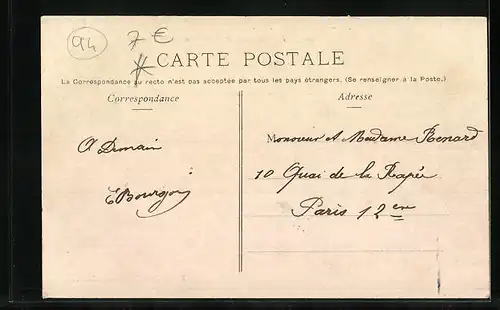 94
7 €
CARTE POSTALE
La Correspondance au recto n'est pas acceptée par tous les pays étrangers. (Se renseigner à la Poste.)
Correspondance
Adresse
A Demain
EBourgoin
Monsieur et Madame Renard
10 Quai de la Rapée
Paris 12eme